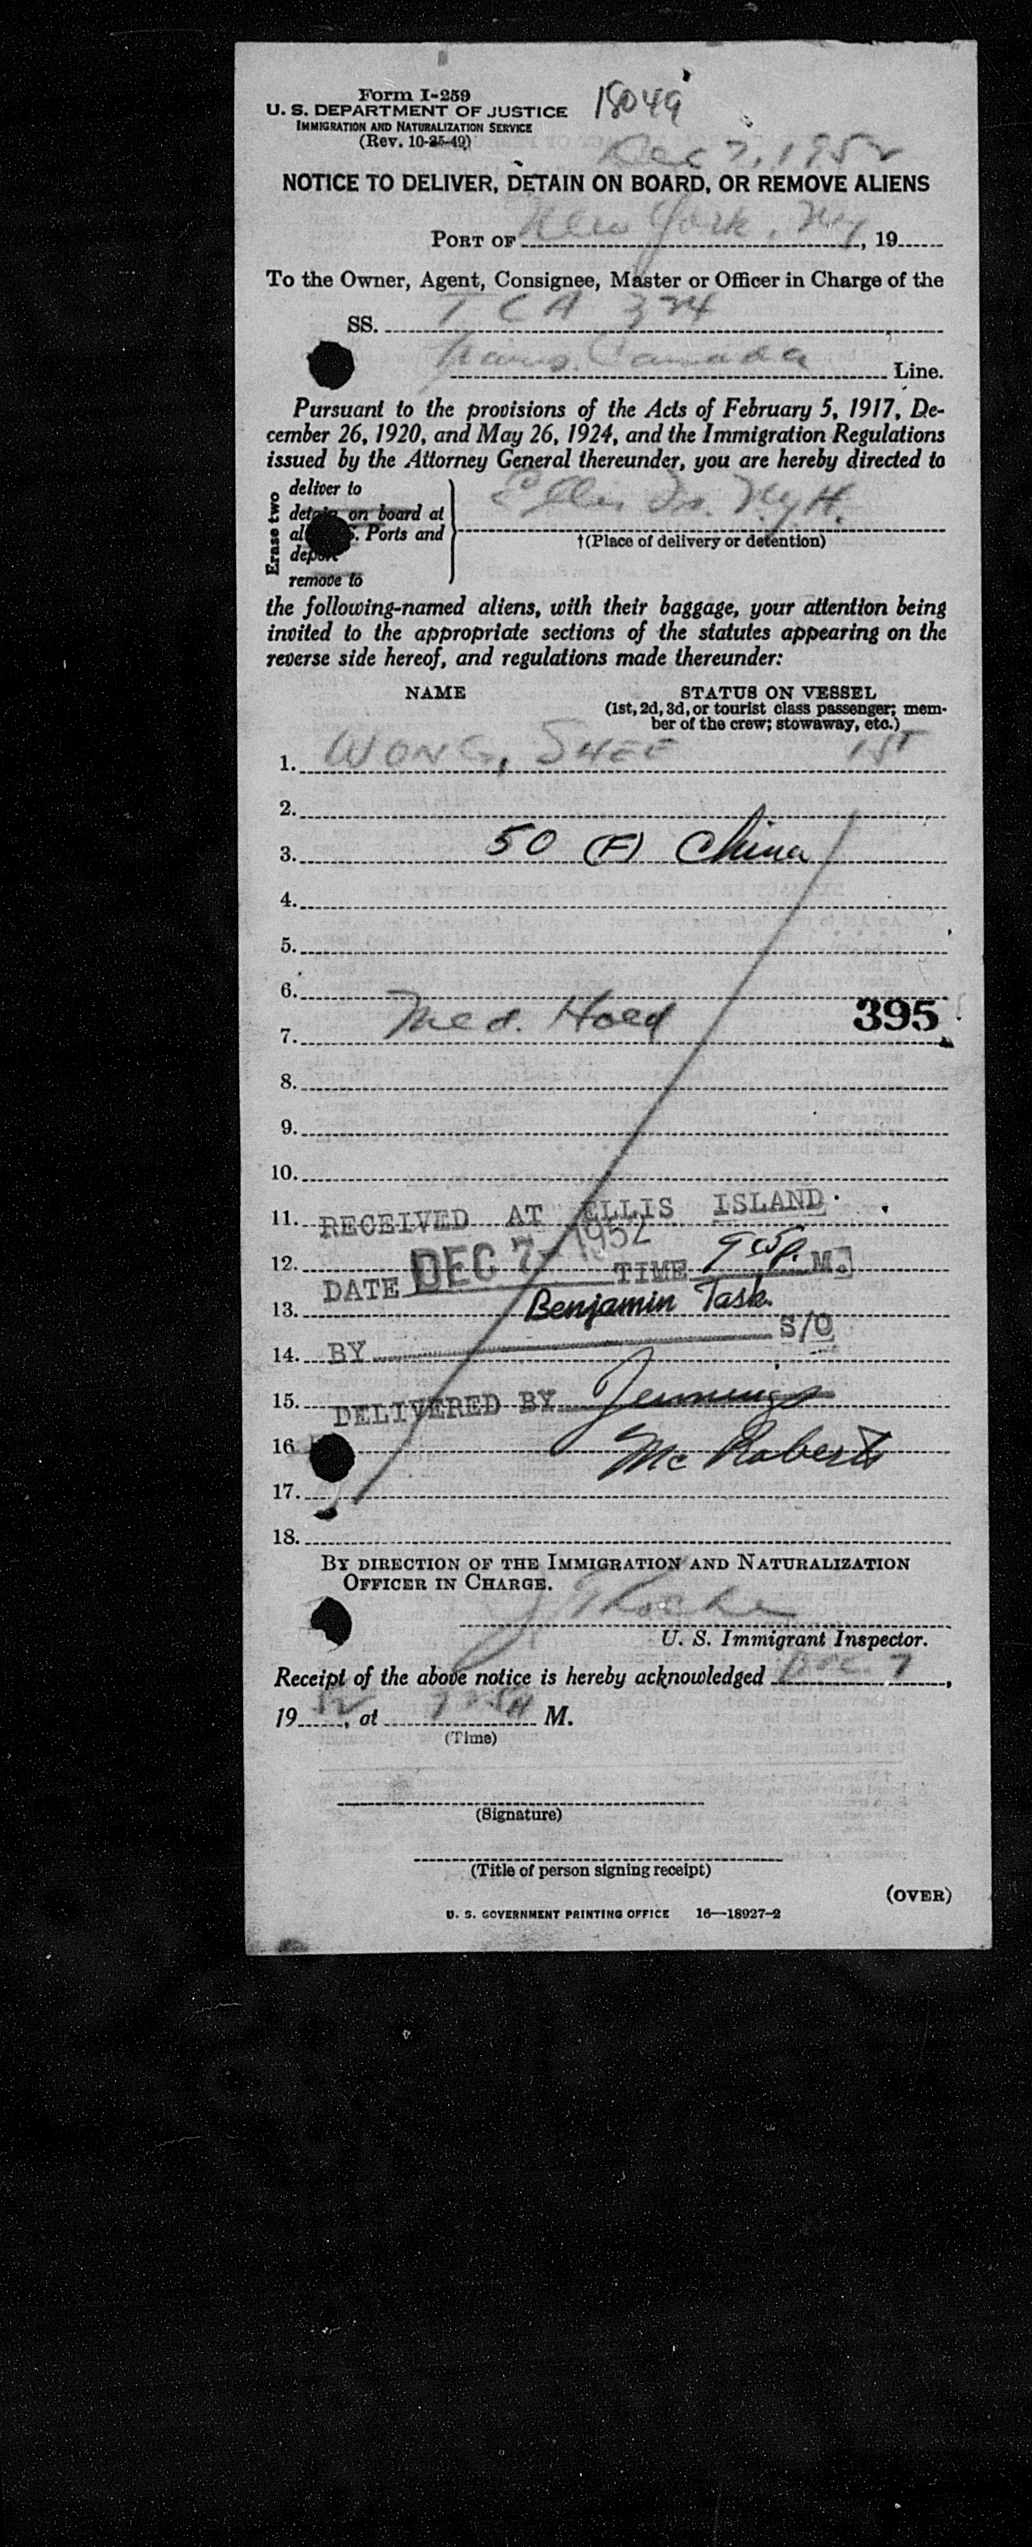 Form I-259
U. S. DEPARTMENT OF JUSTICE
18049
IMMIGRATION AND NATURALIZATION SERVICE
(Rev. 10-25-49)
Dec 7, 1952
NOTICE TO DELIVER, DETAIN ON BOARD, OR REMOVE ALIENS
PORT OF New York, NY, 19
To the Owner, Agent, Consignee, Master or Officer in Charge of the
SS. TCA 324
Trans. Canada Line.
Pursuant to the provisions of the Acts of February 5, 1917, De-
cember 26, 1920, and May 26, 1924, and the Immigration Regulations
issued by the Attorney General thereunder, you are hereby directed to
Erase two
deliver to
detain on board at
al S. Ports and
deport
remove to
Ellis Is. N.Y.H.
†(Place of delivery or detention)
the following-named aliens, with their baggage, your attention being
invited to the appropriate sections of the statutes appearing on the
reverse side hereof, and regulations made thereunder:
NAME STATUS ON VESSEL
(1st, 2d, 3d, or tourist class passenger; mem-
ber of the crew; stowaway, etc.)
1. WONG, SHEE 1ST
2.
3. 50 (F) China
4.
5.
6.
7. Med. Hold 395
8.
9.
10.
11. RECEIVED AT ELLIS ISLAND
12. DATE DEC 7 - 1952 TIME M.
13. Benjamin Task.
14. BY S/O
15. DELIVERED BY Jennings
16 Mc Roberts
17.
18.
BY DIRECTION OF THE IMMIGRATION AND NATURALIZATION
OFFICER IN CHARGE.
U. S. Immigrant Inspector.
Receipt of the above notice is hereby acknowledged Dec. 7,
19 52, at M.
(Time)
(Signature)
(Title of person signing receipt)
(OVER)
U. S. GOVERNMENT PRINTING OFFICE 16—18927-2